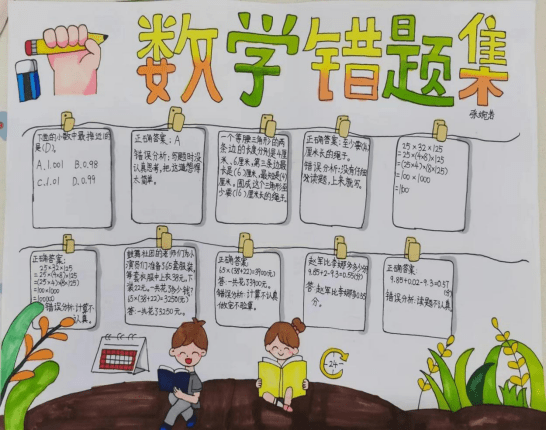 数学错题集
张婉浩
下面的小数中最接近1的
是(D)。
A.1.001 B.0.98
C.1.01 D.0.99
正确答案：A
错误分析：写题时没
认真思考，把这道想得
太简单。
一个等腰三角形的两
条边的长度分别是4厘
米、6厘米，第三条边最
长是(6)厘米，最短是(4)
厘米。围成这个三角形至
少要(16)厘米长的绳子。
正确答案：至少需
厘米长的绳子。
错误分析：没有仔细
读题，上来就写。
25×32×125
=25×(4×8)×125
=(25×4)×(8×125)
=100×1000
=100
正确答案：
25×32×125
=25×(4×8)×125
=(25×4)×(8×125)
=100×1000
错误分析：计算不
认真。
社团的老师们为小
演员们准备了65套服装，
每套衣服中上衣38元，下
装22元。一共花了多少钱？
65×(38+22)=3250(元)
答：一共花了3250元。
正确答案：
65×(38+22)=3900(元)
答：一共花了3900元。
错误分析：计算不认真，
做完不验算。
赵军比李娜多多少分
9.85+2-9.3=0.55(分)
答：赵军比李娜多0.55
分。
正确答案：
9.85+0.02-9.3=0.57
(分)
错误分析：读题不认真。
24